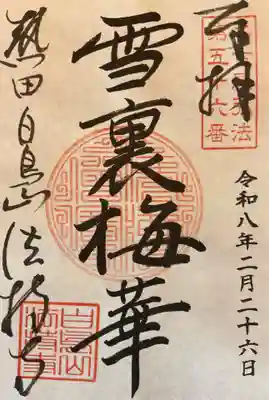 奉拝
第五十六番
令和八年二月二十六日
雪裏梅華
熱田白鳥山法持寺
白鳥山